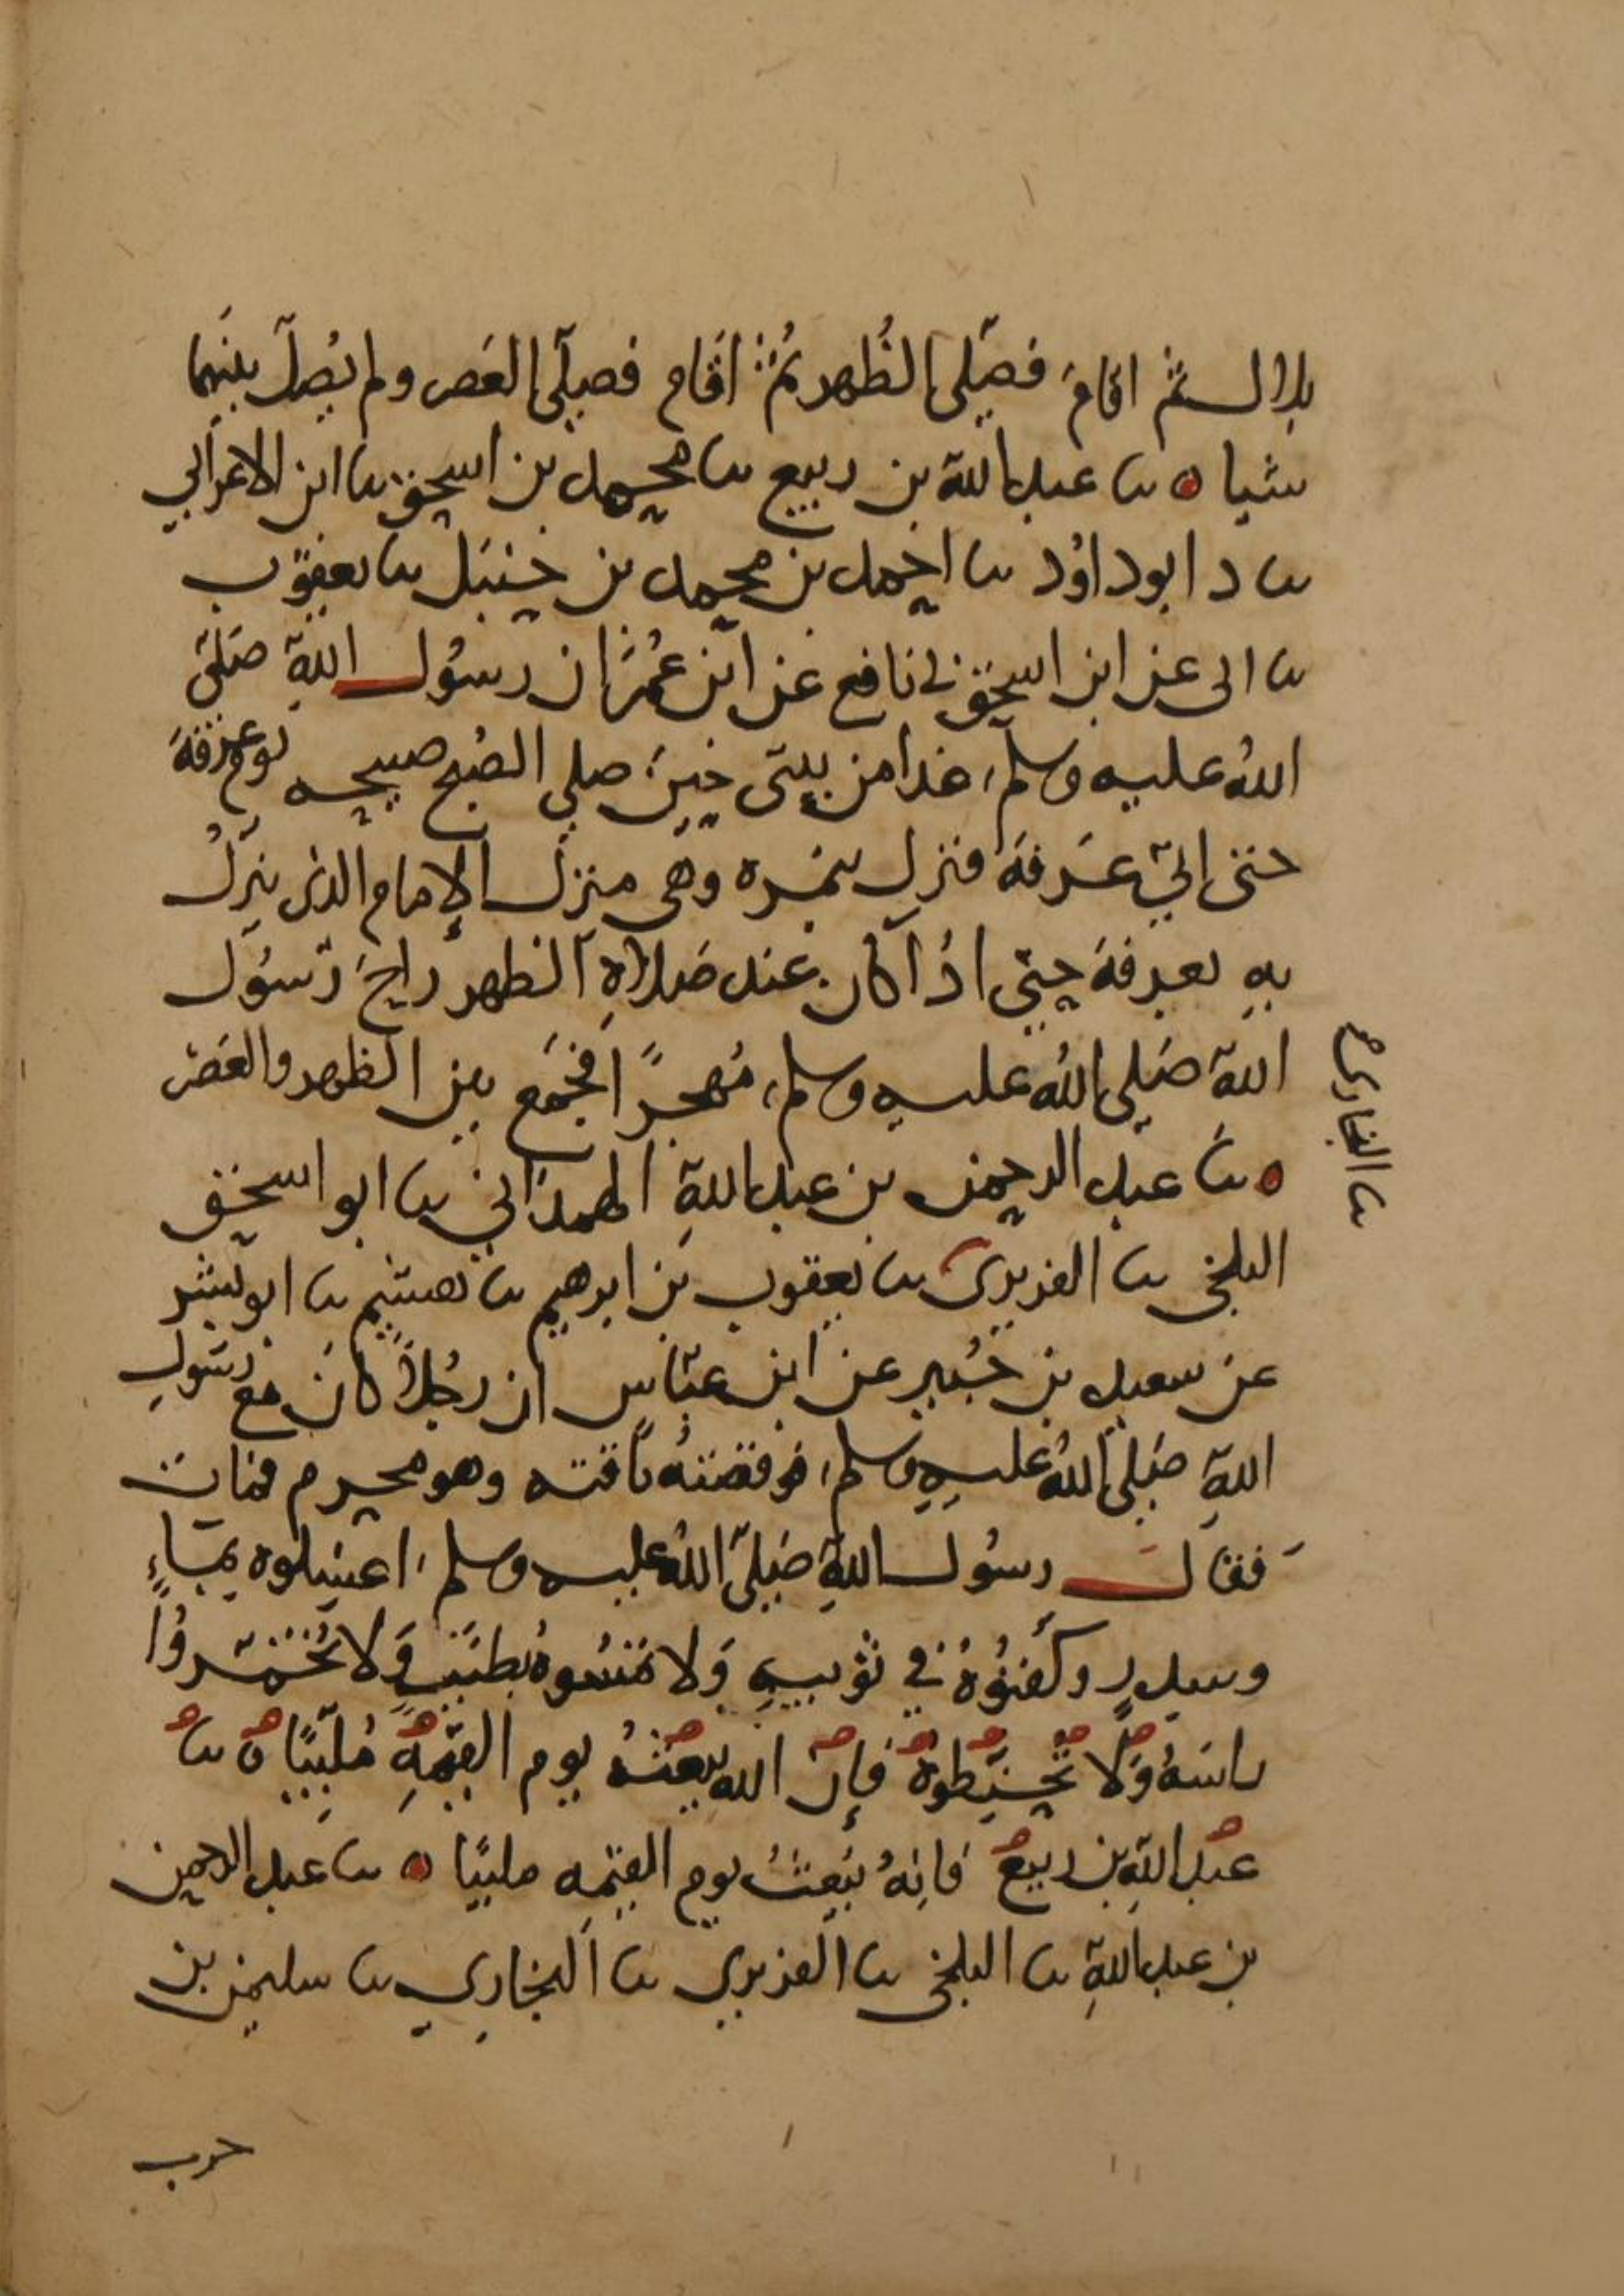 بلال ثم اقام فصلى الظهر ثم اقام فصلى العصر ولم يصل بينهما
شيا ۝ نا عبد الله بن ربيع نا محمد بن اسحق نا ابن الاعرابي
نا د ابو داود نا احمد بن محمد بن حنبل نا يعقوب
نا ابى عن ابن اسحق نى نافع عن ابن عمر ان رسول الله صلى
الله عليه وسلم غدا من منى حين صلى الصبح صبيحه يوم عرفة
حتى اتى عرفة فنزل بنمره وهى منزل الإمام الذى ينزل
به بعرفة حتى اذا كان عند صلاة الظهر راح رسول
الله صلى الله عليه وسلم مهجرًا فجمع بين الظهر والعصر
۝ نا عبد الرحمن بن عبد الله الهمدانى نا ابو اسحق
نا البخارى
البلخى نا الفربرى نا يعقوب بن ابرهيم نا هشيم نا ابو بشر
عن سعيد بن جبير عن ابن عباس ان رجلاً كان مع رسول
الله صلى الله عليه وسلم فوقصته ناقته وهو محرم فمات
فقال رسول الله صلى الله عليه وسلم اغسلوه بماءٍ
وسدر وكفنوه في ثوبيه ولا تمسوه بطيب ولا تخمروا
راسه ولا تحنطوه فإن الله يبعثه يوم القيمة ملبيًا ۝ نا
عبد الله بن ربيع فانه يبعث يوم القيمه ملبيًا ۝ نا عبد الرحمن
بن عبد الله نا البلخى نا الفربري نا البخاري نا سليمن بن
حرب